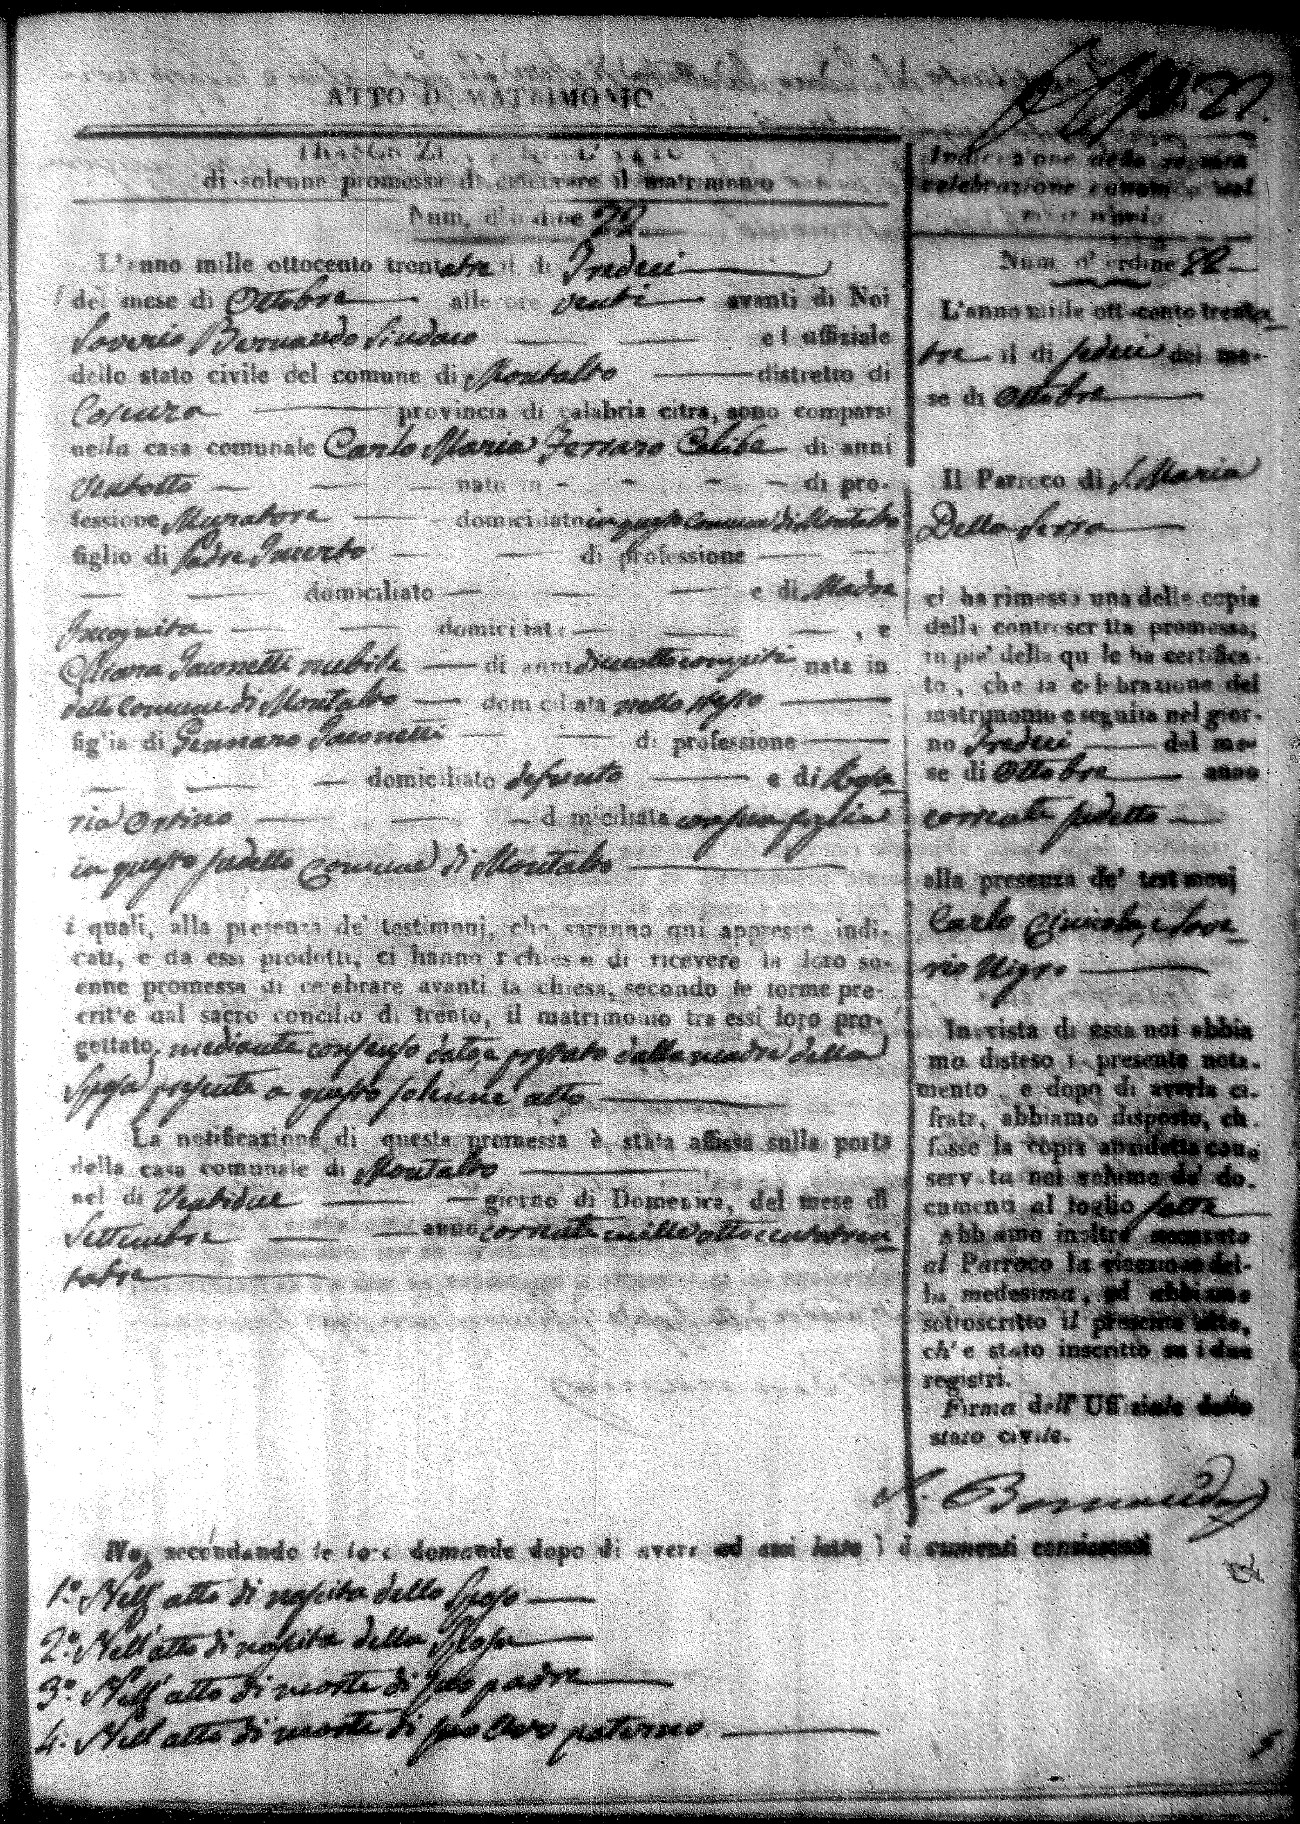 ATTO DI MATRIMONIO
22.
di solenne promessa di celebrare il matrimonio
Num. d'ordine 22
L'anno mille ottocento trentatre il di Tredeci
del mese di Ottobre alle ore venti avanti di Noi
Saverio Bernaudo Sindaco ed uffiziale
dello stato civile del comune di Montalto distretto di
Cosenza provincia di calabria citra, sono comparsi
nella casa comunale Carlo Maria Ferraro Celibe di anni
Ventotto nato in di pro-
fessione Muratore domiciliato in questo Comune di Montalto
figlio di Padre Incerto di professione
domiciliato e di Madre
Incognita domiciliata , e
Iaconetti nubile di anni dieciotto compiti nata in
detto Comune di Montalto domiciliata nello stesso
figlia di Gennaro Iaconetti di professione
domiciliato defunto e di Rosa-
ria Ortino domiciliata con sua figlia
in questo sudetto Comune di Montalto
i quali, alla presenza de' testimonj, che saranno qui appresso indi-
cati, e da essi prodotti, ci hanno richiesto di ricevere la loro so-
enne promessa di celebrare avanti la chiesa, secondo le forme pre-
critte dal sacro concilio di trento, il matrimonio tra essi loro pro-
gettato, mediante consenso dato, e prestato dalla madre della
Sposa presente a questo solenne atto
La notificazione di questa promessa è stata affissa sulla porta
della casa comunale di Montalto
nel di Ventidue giorno di Domenica, del mese di
Settembre anno corrente mille ottocentotren-
tatre
Indicazione della seguita
celebrazione canonica del
matrimonio
Num. d'ordine 22
L'anno mille ottocento trenta-
tre il di sedeci del me-
se di Ottobre
Il Parroco di S. Maria
Della Serra
ci ha rimessa una delle copie
della controscritta promessa;
in piè della quale ha certifica-
to, che la celebrazione del
matrimonio e seguita nel gior-
no Tredeci del me-
se di Ottobre anno
corrente sudetto
alla presenza de' testimonj
Carlo e Save-
rio Nigro
In vista di essa noi abbia
mo disteso il presente nota-
mento, e dopo di averla ci-
frata, abbiamo disposto, ch.
fosse la copia anzidetta con-
servata nel volume de' do-
cumenti al foglio
Abbiamo inoltre accusato
al Parroco la ricezione del-
la medesima, ed abbiamo
sottoscritto il presente atto,
ch' e stato inscritto su i due
registri.
Firma dell' Uffiziale dello
stato civile.
S. Bernaudo
Noi, secondando le loro domande dopo di avere ad essi letto i documenti consistenti
1.º Nell'atto di nascita dello Sposo
2.º Nell'atto di nascita della Sposa
3.º Nell'atto di morte di suo padre
4.º Nell'atto di morte di suo Avo paterno.